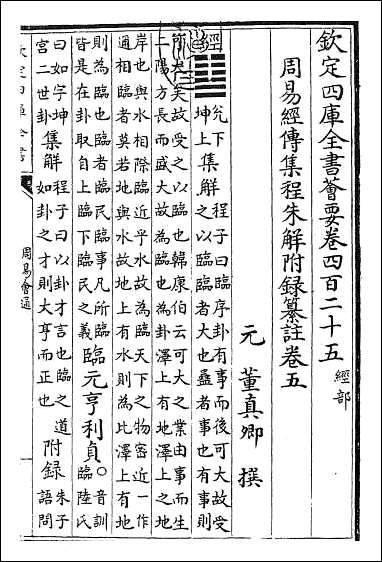 欽定四庫全書薈要卷四百二十五 經部
周易經傳集程朱解附録纂註卷五
元 董真卿 撰
經
䷒
兌下
坤上
集解
程子曰臨序卦有事而後可大故受
之以臨臨者大也蠱者事也有事則
可大矣故受之以臨也韓康伯云可大之業由事而生
二陽方長而盛大故為臨也為卦澤上有地澤上之地
岸也與水相際臨近乎水故為臨天下之物密近一作
通相臨者莫若地與水故地上有水則為比澤上有地
則為臨也臨者臨民臨事凡所臨
皆是在卦取自上臨下臨民之義
臨元亨利貞
○音訓
臨陸氏
曰如字坤
宮二世卦
集解
程子曰以卦才言也臨之道
如卦之才則大亨而正也
附録
朱子
語問
周易會通